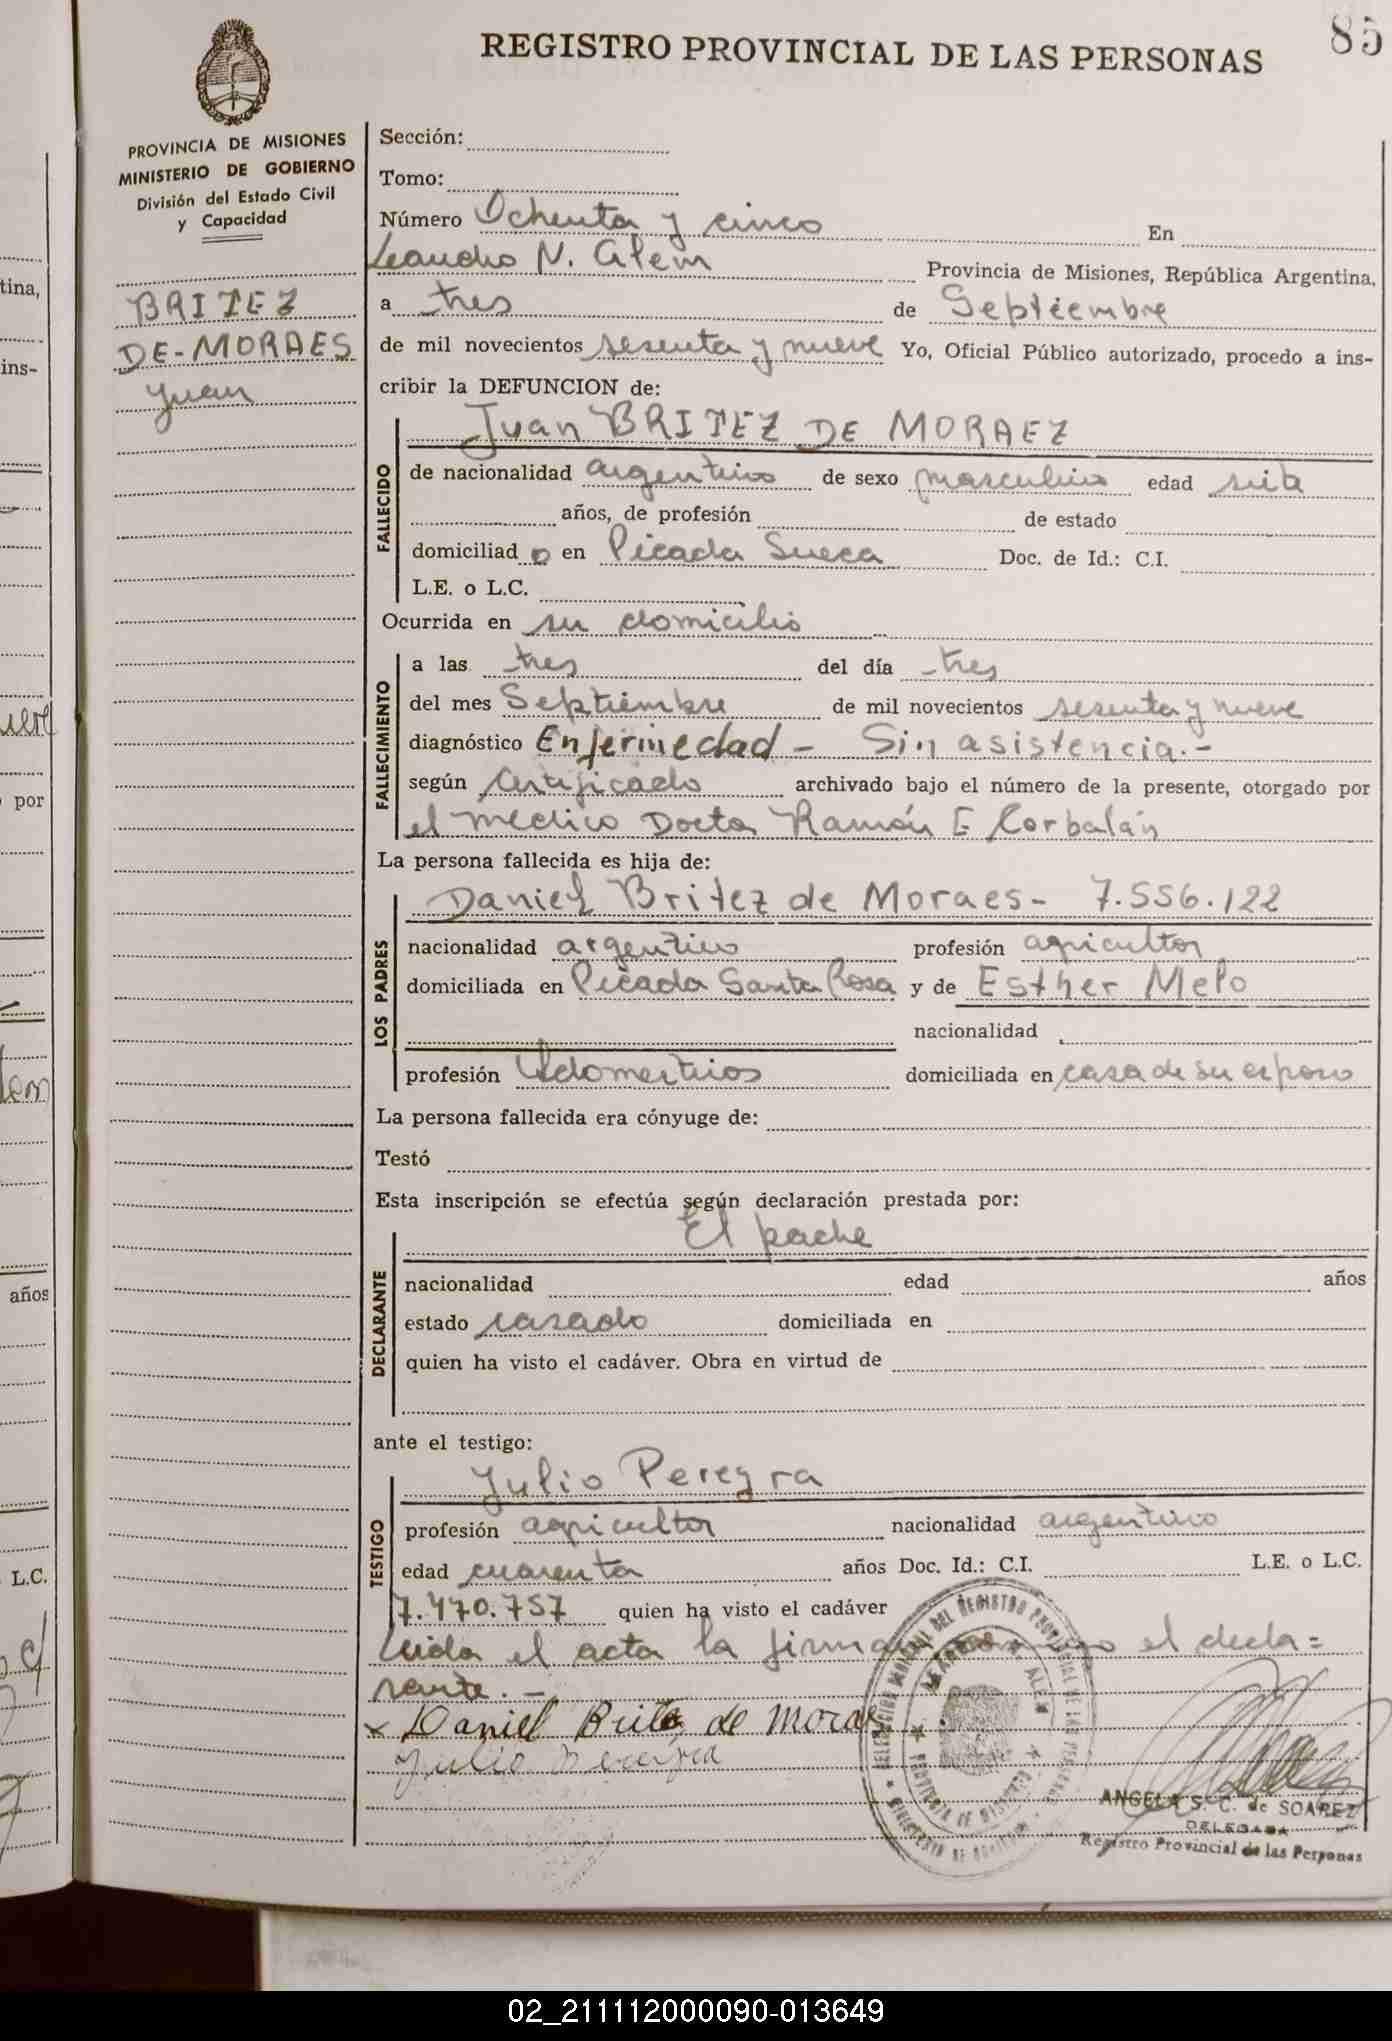 85
REGISTRO PROVINCIAL DE LAS PERSONAS
PROVINCIA DE MISIONES
MINISTERIO DE GOBIERNO
División del Estado Civil
y Capacidad
BRITEZ
DE-MORAES
Juan
Sección:
Tomo:
Número Ochenta y cinco En
Leandro N. Alem Provincia de Misiones, República Argentina,
a tres de Septiembre
de mil novecientos sesenta y nueve Yo, Oficial Público autorizado, procedo a ins-
cribir la DEFUNCION de:
FALLECIDO
Juan BRITEZ DE MORAEZ
de nacionalidad argentino de sexo masculino edad
años, de profesión de estado
domiciliad o en Picada Sueca Doc. de Id.: C.I.
L.E. o L.C.
Ocurrida en su domicilio
FALLECIMIENTO
a las tres del día tres
del mes Septiembre de mil novecientos sesenta y nueve
diagnóstico Enfermedad - Sin asistencia.-
según Certificado archivado bajo el número de la presente, otorgado por
el medico Doctor Ramón E Corbalán
La persona fallecida es hija de:
LOS PADRES
Daniel Britez de Moraes- 7.556.122
nacionalidad argentino profesión agricultor
domiciliada en Picada Santa Rosa y de Esther Melo
nacionalidad
profesión domiciliada en casa de su esposo
La persona fallecida era cónyuge de:
Testó
Esta inscripción se efectúa según declaración prestada por:
DECLARANTE
El padre
nacionalidad edad años
estado casado domiciliada en
quien ha visto el cadáver. Obra en virtud de
ante el testigo:
TESTIGO
Julio Pereyra
profesión agricultor nacionalidad argentino
edad cuarenta años Doc. Id.: C.I. L.E. o L.C.
7.470.757 quien ha visto el cadáver
Leida el acta la firma el decla=
rante.-
x Daniel de Mora
Julio
ANGELA S. C. de SOAREZ
DELEGADA
Registro Provincial de las Personas
tina,
ins-
por
años
L.C.
02_211112000090-013649